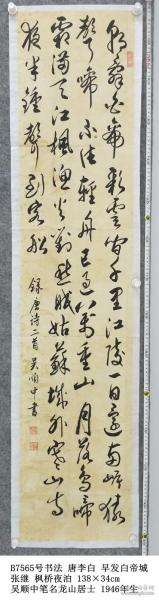 朝辞白帝彩云间千里江陵一日还两岸猿
声啼不住轻舟已过万重山月落乌啼
霜满天江枫渔火对愁眠姑苏城外寒山寺
夜半钟声到客船
录唐诗二首吴顺中书
B7565号书法 唐李白 早发白帝城
张继 枫桥夜泊 138×34cm
吴顺中笔名龙山居士 1946年生